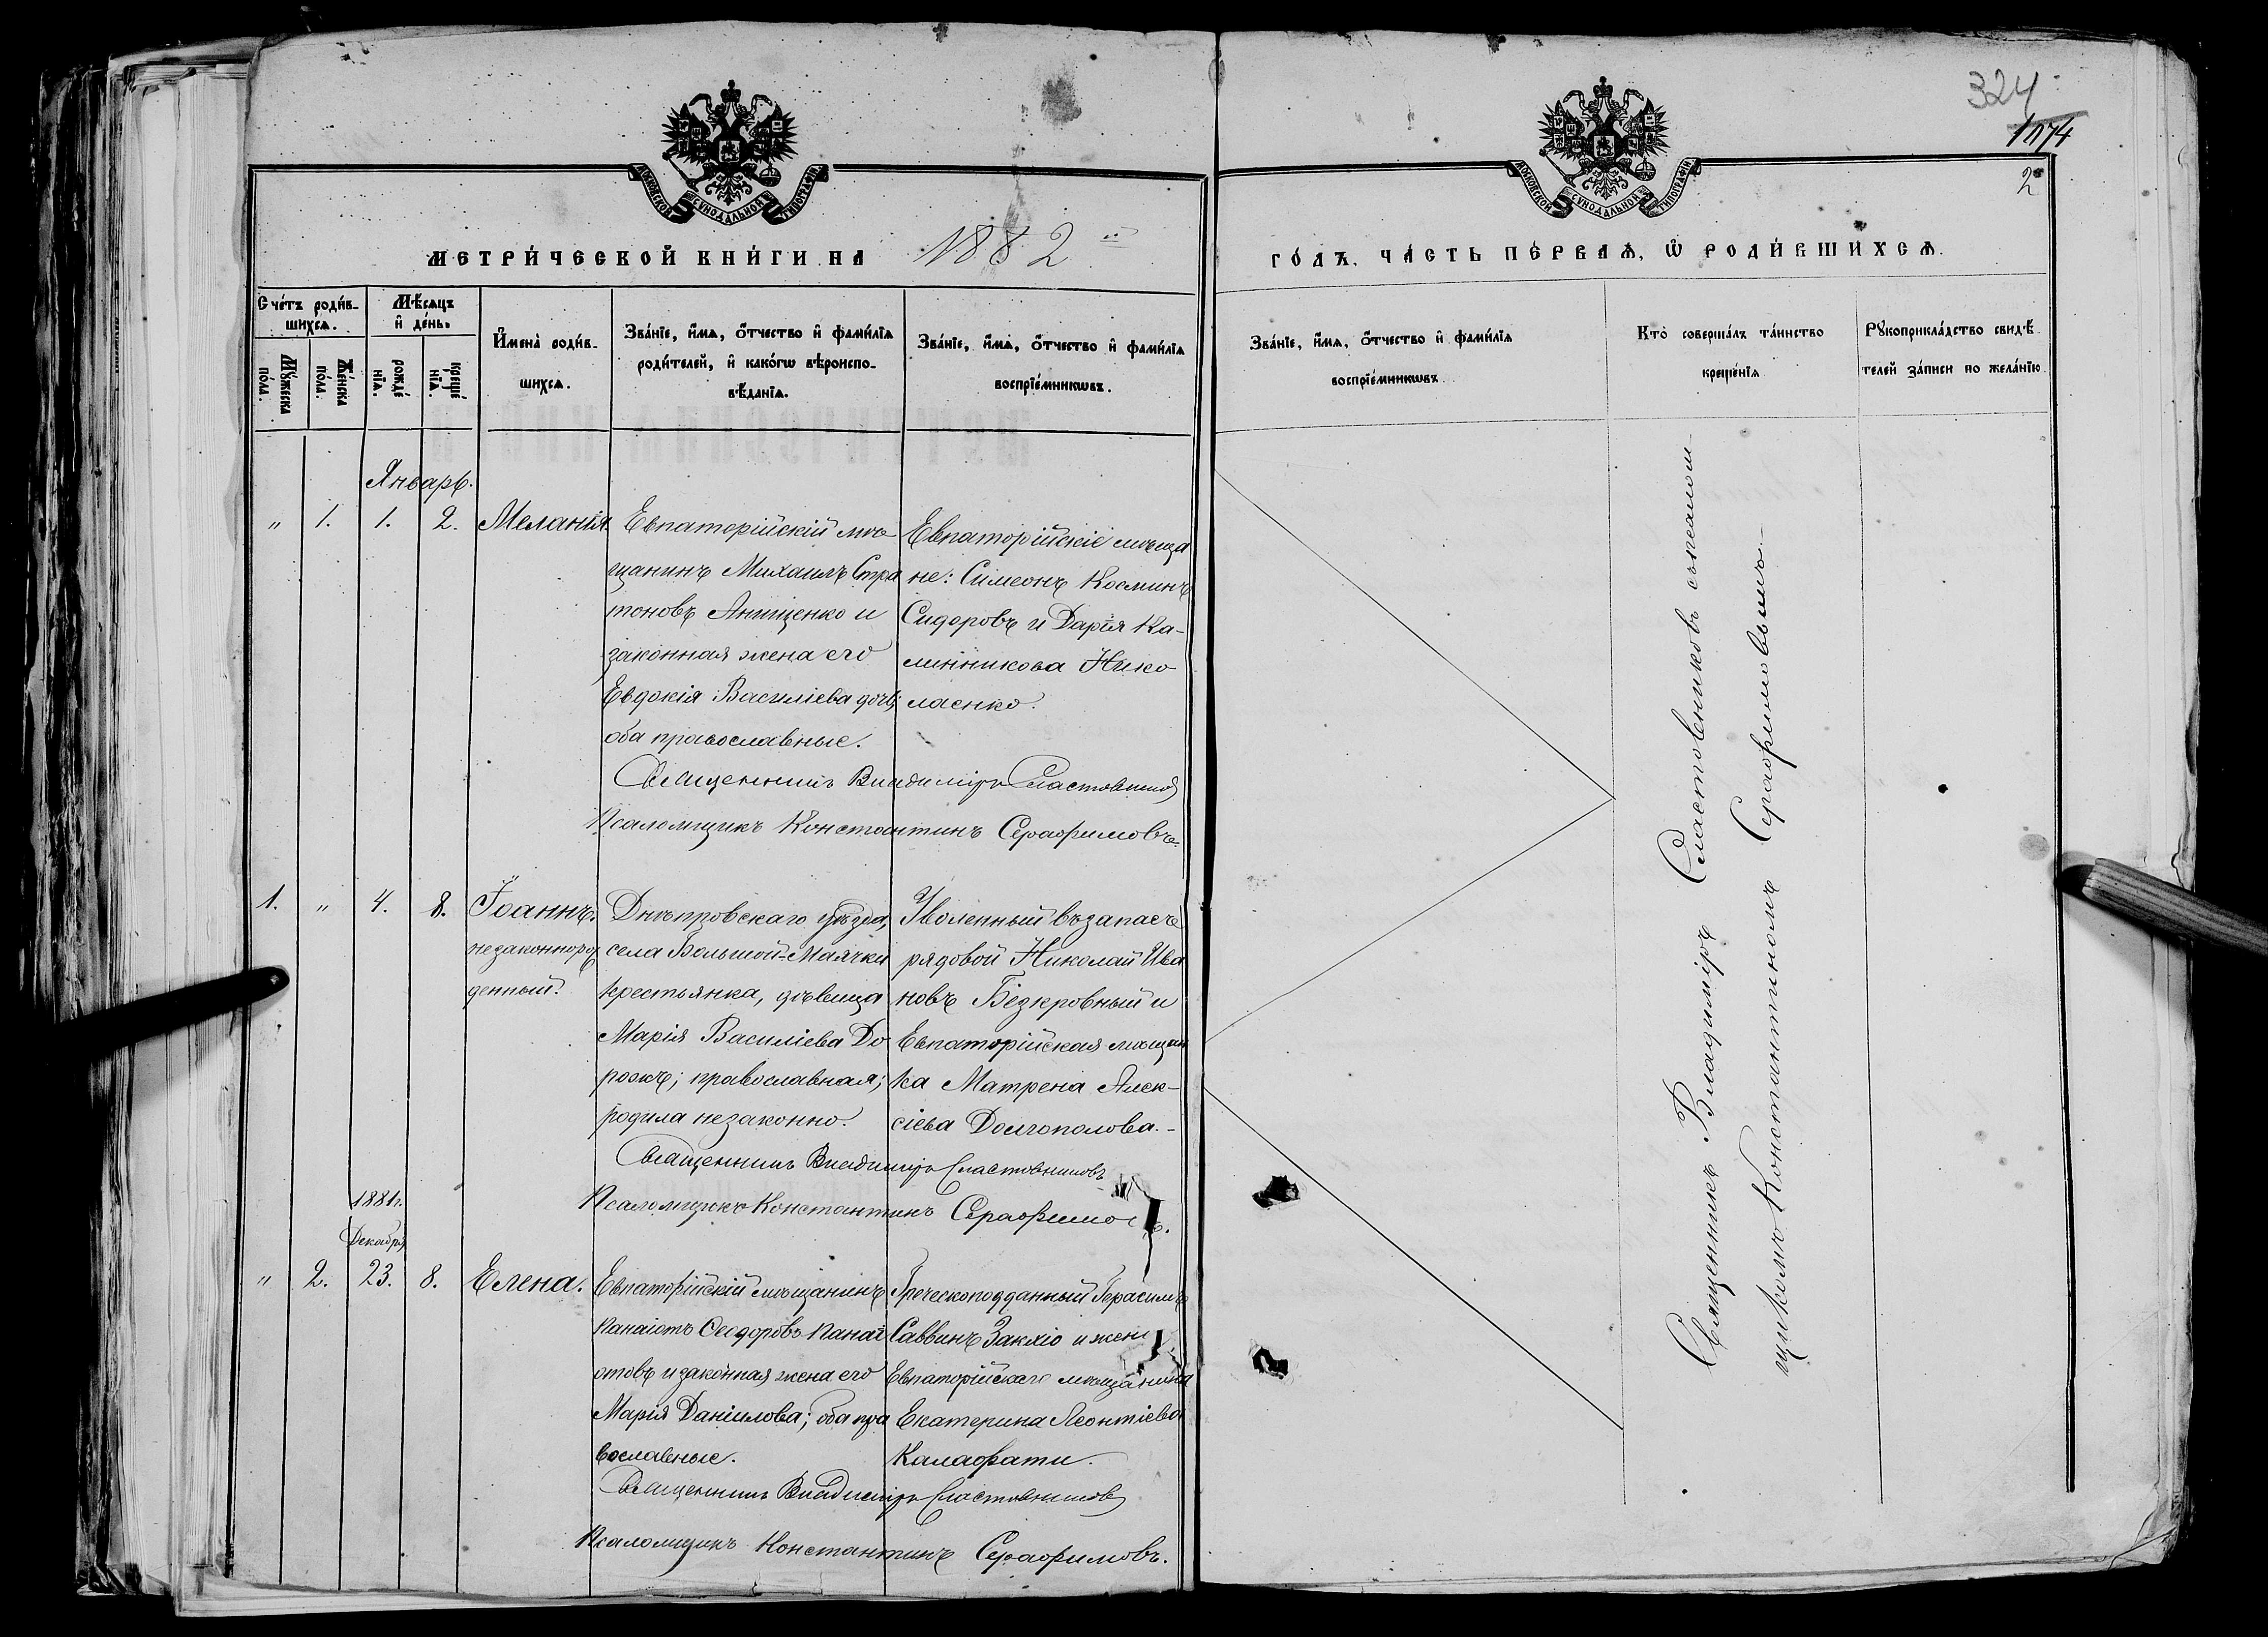 324
1074
2
МОСКОВСКОЙ СѴНОДАЛЬНОЙ ТИПОГРАФІИ
МОСКОВСКОЙ СѴНОДАЛЬНОЙ ТИПОГРАФІИ
МЕТРИ́ЧЕСКОЙ КНИ́ГИ НА 1882 й
ГО́ДЪ, ЧА́СТЬ ПЕ́РВАѦ, Ѡ҆ РОДИ́ВШИХСѦ.
Сче́тъ роди́в-
шихсѧ.
Мꙋ́жеска
по́ла.
Же́нска
по́ла.
Мѣ́сѧцъ
и҆ де́нь.
рожде́
нїѧ.
креще́
нїѧ.
И҆мена̀ роди́в-
шихсѧ.
Зва́нїе, и҆́мѧ, ѻ҆́тчество и҆ фами́лїѧ
роди́телей, и҆ како́гѡ вѣроиспо-
вѣ́данїѧ.
Зва́нїе, и҆́мѧ, ѻ҆́тчество и҆ фами́лїѧ
воспрїе́мникѡвъ.
Зва́нїе, и҆́мѧ, ѻ҆́тчество и҆ фами́лїѧ
воспрїе́мникѡвъ.
Кто̀ соверша́лъ та́инство
креще́нїѧ
Рꙋкоприкла́дство свидѣ́
телей за́писи по жела́нїю
Январь.
" 1. 1. 2. Меланія.
Евпаторійскій мѣ
щанинъ Михаилъ Стра
тоновъ Анищенко и
законная жена его
Евдокія Василіева дочь;
оба православные.
Евпаторійскіе мѣща
не: Симеонъ Косминъ
Сидоровъ и Дарія Ка-
линникова Нико
лаенко.
Священникъ Владиміръ Сластовниковъ
Псаломщикъ Константинъ Серафимовъ.
1. " 4. 8. Іоаннъ.
незаконнорож
денный.
Днѣпровскаго уѣзда,
села Большой-Маячки
крестьянка, дѣвица
Марія Василіева До
рожъ; православная;
родила незаконно.
Уволенный въ запасъ
рядовой Николай Ива
новъ Безкровный и
Евпаторійская мѣщан
ка Матрена Алек-
сіева Долгополова.-
Священникъ Владиміръ Сластовниковъ
Псаломщикъ Константинъ Серафимовъ.
1881г.
Декабря
" 2. 23. 8. Елена.
Евпаторійскій мѣщанинъ
Панаіотъ Ѳеодоровъ Панаі
отовъ и законная жена его
Марія Даніилова; оба пра
вославные.
Греческоподданный Герасимъ
Саввинъ Заклію и жена
Евпаторійскаго мѣщанина
Екатерина Леонтіева
Калафати.
Священникъ Владиміръ Сластовниковъ
Псаломщикъ Константинъ Серафимовъ.
Священникъ Владиміръ Сластовниковъ съ псалом-
щикомъ Константиномъ Серафимовымъ.-